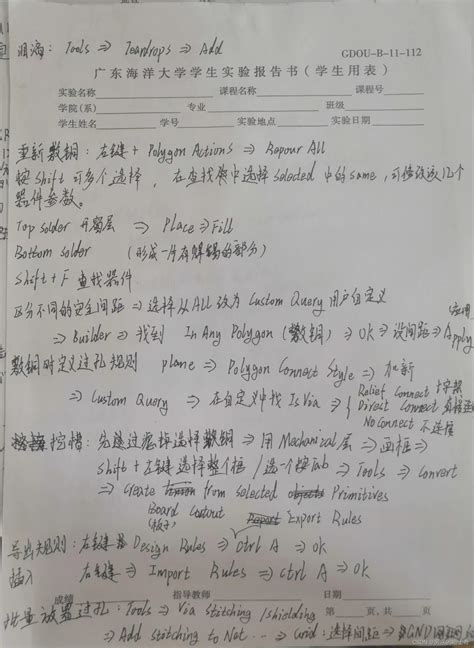 泪滴: Tools ⇒ Teardrops ⇒ Add
GDOU-B-11-112
广东海洋大学学生实验报告书(学生用表)
实验名称 课程名称 课程号
学院(系) 专业 班级
学生姓名 学号 实验地点 实验日期
重新敷铜: 右键 + Polygon Actions ⇒ Repour All
按 Shift 可多个选择, 在查找框中选择 Selected 中的 same, 可修改几个
器件参数。
Top solder 开窗层 ⇒ Place ⇒ Fill
Bottom solder (形成一片有焊锡的部分)
Shift + F 查找器件
区分不同的安全间距 ⇒ 选择从 ALL 改为 Custom Query 用户自定义
⇒ Builder ⇒ 找到 In Any Polygon (敷铜) ⇒ OK ⇒ 设间距 ⇒ Apply
应用
敷铜时定义过孔规则 plane ⇒ Polygon Connect Style ⇒ 加新
⇒ Custom Query ⇒ 在自定义中找 Is Via ⇒
Relief Connect 十字架
Direct Connect 直接连
No Connect 不连接
挖槽: 选择敷铜 ⇒ 用 Mechanical 层 ⇒ 画框 ⇒
Shift + 左键选择整个框 / 选一个按 Tab ⇒ Tools ⇒ Convert
⇒ Create from selected Primitives
Board Cutout
(板子)
Export Rules
导出规则: 右键 Design Rules ⇒ ctrl A ⇒ OK
插入 右键 ⇒ Import Rules ⇒ ctrl A ⇒ OK
成绩 指导教师 日期
批量放置过孔: Tools ⇒ Via Stitching / shielding
第 页,共 页
⇒ Add stitching to Net ... ⇒ Grid: 选择间距 ⇒